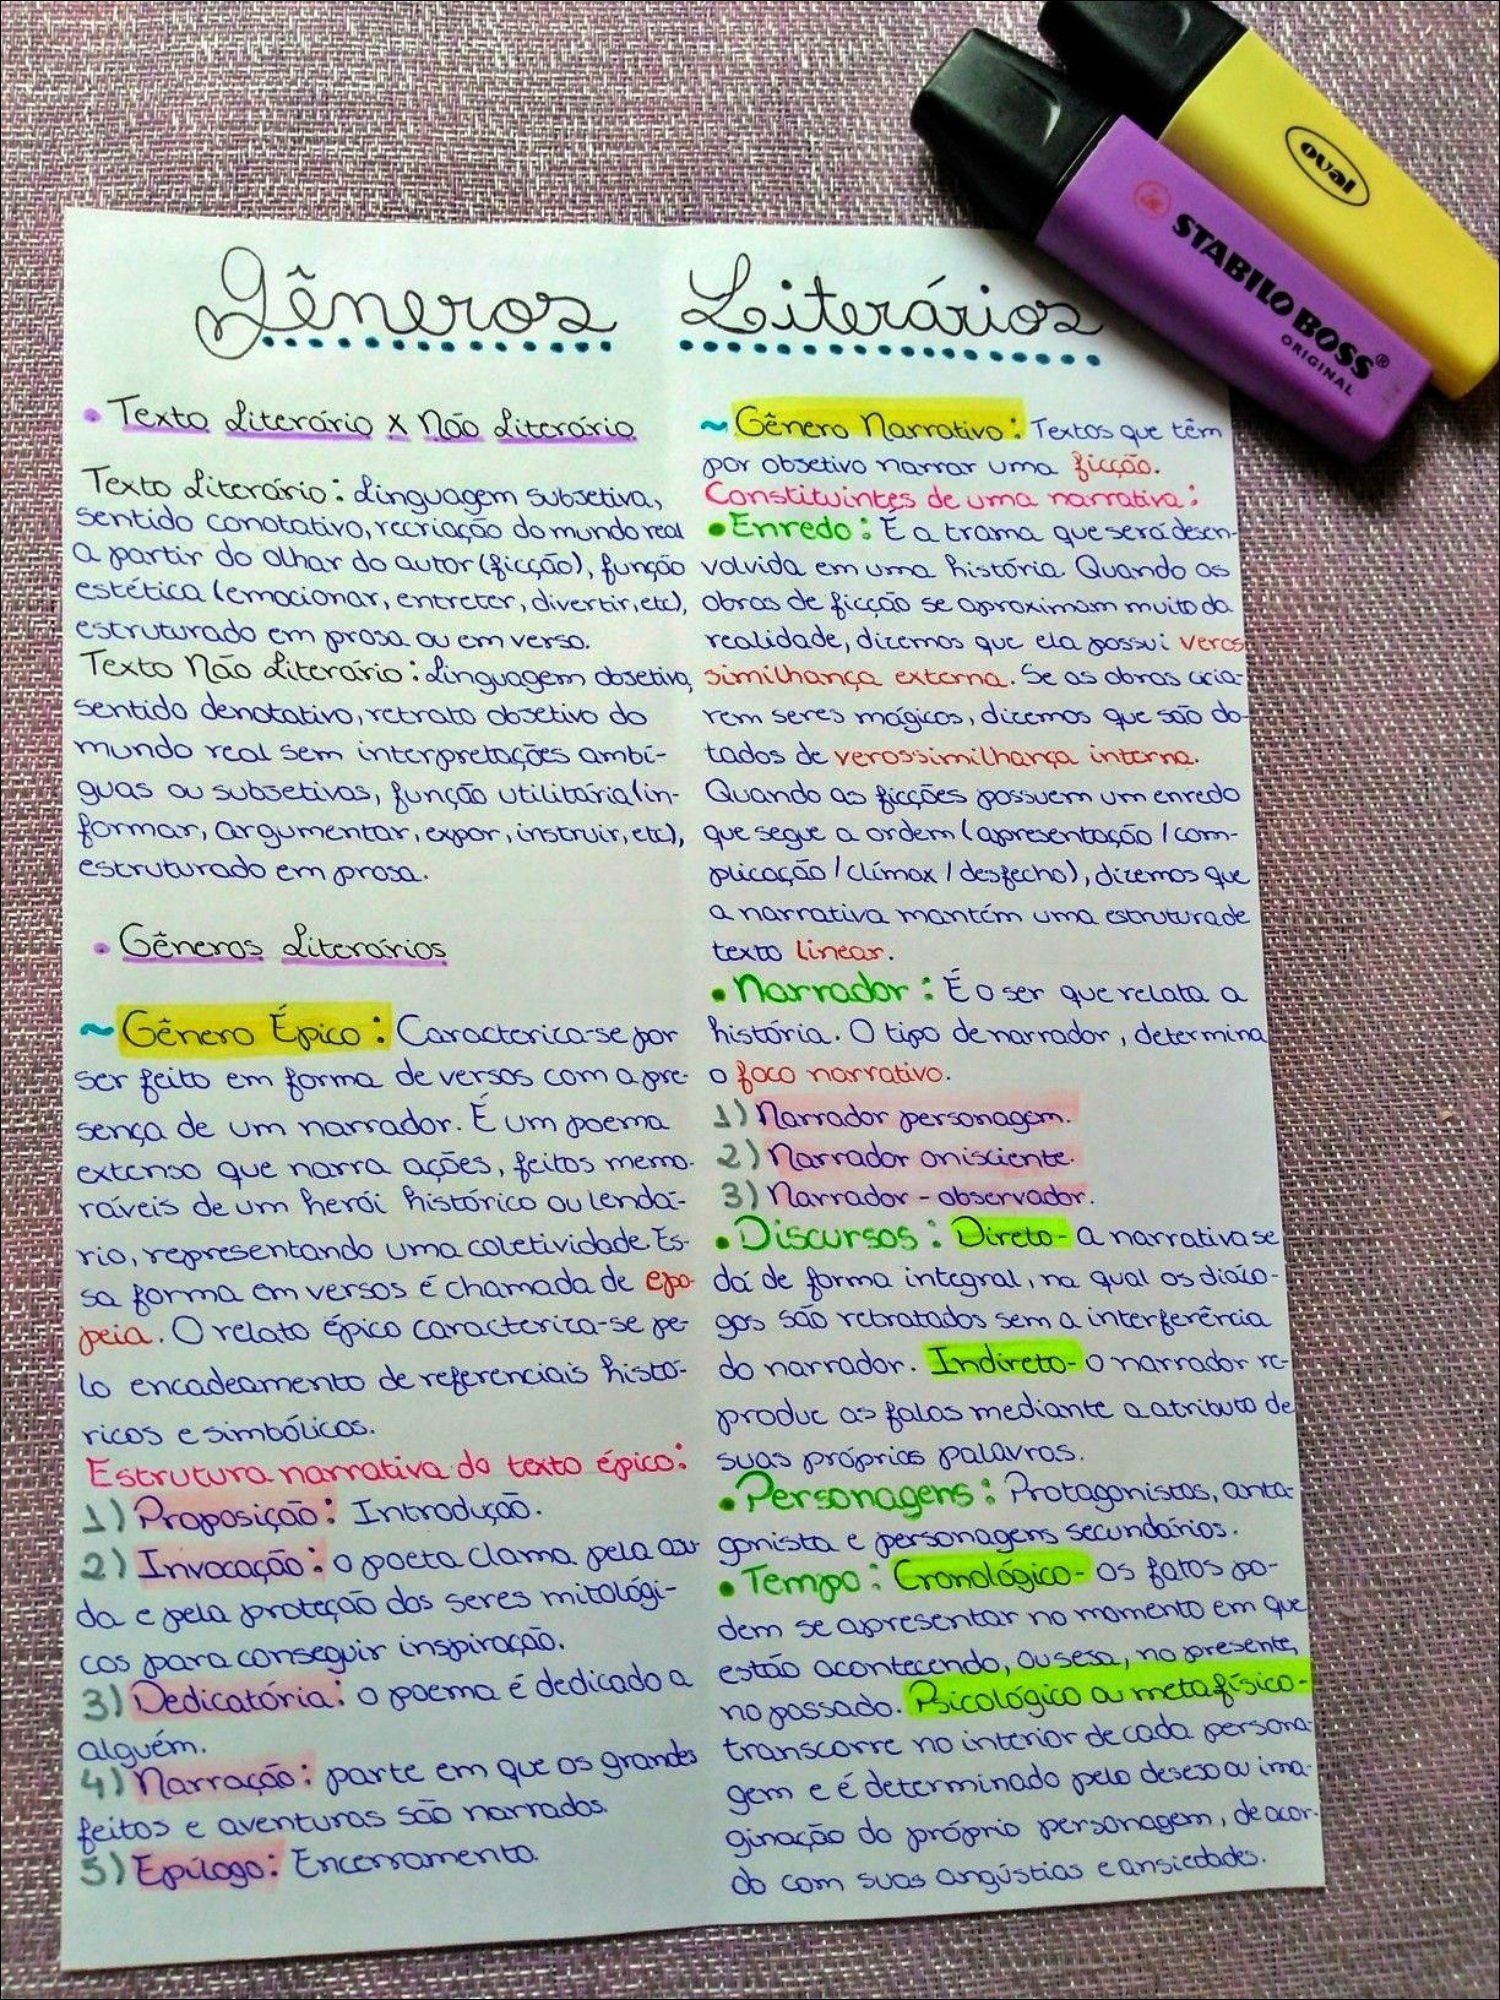 Gêneros Literários
• Texto Literário x Não Literário
Texto Literário: Linguagem subjetiva,
sentido conotativo, recriação do mundo real
a partir do olhar do autor (ficção), função
estética (emocionar, entreter, divertir, etc),
estruturado em prosa ou em verso.
Texto Não Literário: Linguagem objetiva,
sentido denotativo, retrato objetivo do
mundo real sem interpretações ambí-
guas ou subjetivas, função utilitária (in-
formar, argumentar, expor, instruir, etc),
estruturado em prosa.
• Gêneros Literários
~ Gênero Épico: Caracteriza-se por
ser feito em forma de versos com a pre-
sença de um narrador. É um poema
extenso que narra ações, feitos memo-
ráveis de um herói histórico ou lendá-
rio, representando uma coletividade. Es-
sa forma em versos é chamada de epo-
peia. O relato épico caracteriza-se pe-
lo encadeamento de referenciais histó-
ricos e simbólicos.
Estrutura narrativa do texto épico:
1) Proposição: Introdução.
2) Invocação: o poeta clama pela aju-
da e pela proteção dos seres mitológi-
cos para conseguir inspiração.
3) Dedicatória: o poema é dedicado a
alguém.
4) Narração: parte em que os grandes
feitos e aventuras são narrados.
5) Epílogo: Encerramento.
~ Gênero Narrativo: Textos que têm
por objetivo narrar uma ficção.
Constituintes de uma narrativa:
• Enredo: É a trama que será desen-
volvida em uma história. Quando as
obras de ficção se aproximam muito da
realidade, dizemos que ela possui veros
similhança externa. Se as obras cria-
rem seres mágicos, dizemos que são do-
tados de verossimilhança interna.
Quando as ficções possuem um enredo
que segue a ordem (apresentação / com-
plicação / clímax / desfecho), dizemos que
a narrativa mantém uma estrutura de
texto linear.
• Narrador: É o ser que relata a
história. O tipo de narrador, determina
o foco narrativo.
1) Narrador personagem.
2) Narrador onisciente.
3) Narrador-observador.
• Discursos: Direto- A narrativa se
dá de forma integral, na qual os diálo-
gos são retratados sem a interferência
do narrador. Indireto- o narrador re-
produz as falas mediante a atributo de
suas próprias palavras.
• Personagens: Protagonistas, anta-
gonista e personagens secundários.
• Tempo: Cronológico- os fatos po-
dem se apresentar no momento em que
estão acontecendo, ou seja, no presente,
no passado. Psicológico ou metafísico-
transcorre no interior de cada persona-
gem e é determinado pelo desejo ou ima-
ginação do próprio personagem, de acor-
do com suas angústias e ansiedades.
oval
STABILO BOSS®
ORIGINAL